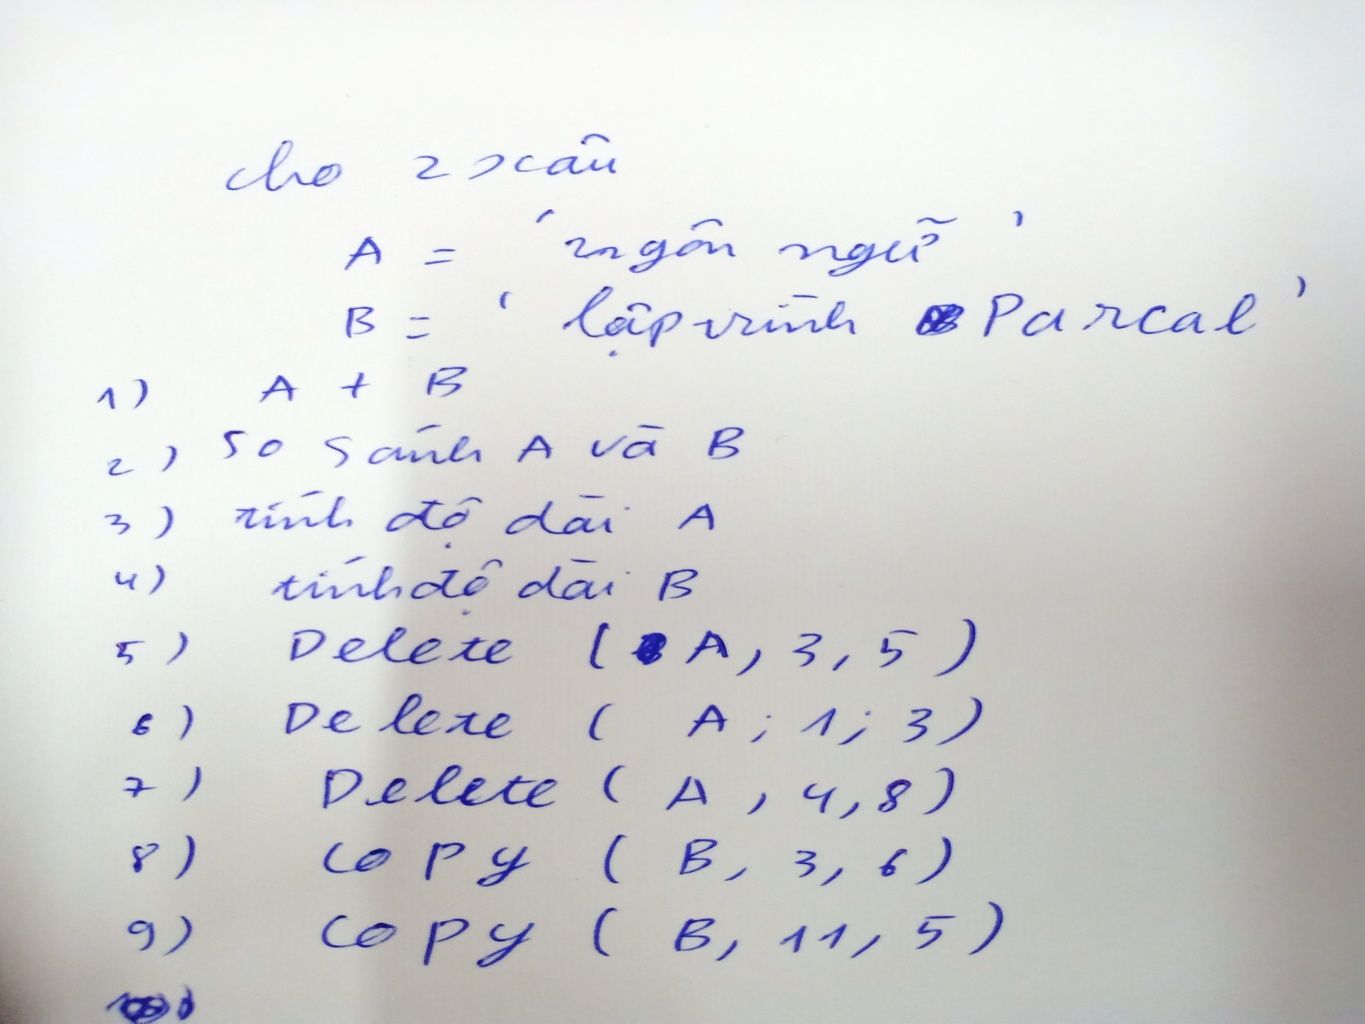 cho 2 xâu
A = 'ngôn ngữ'
B = 'lập trình Parcal'
1) A + B
2) So sánh A và B
3) tính độ dài A
4) tính độ dài B
5) Delete (A, 3, 5)
6) Delete (A; 1; 3)
7) Delete (A, 4, 8)
8) copy (B, 3, 6)
9) copy (B, 11, 5)